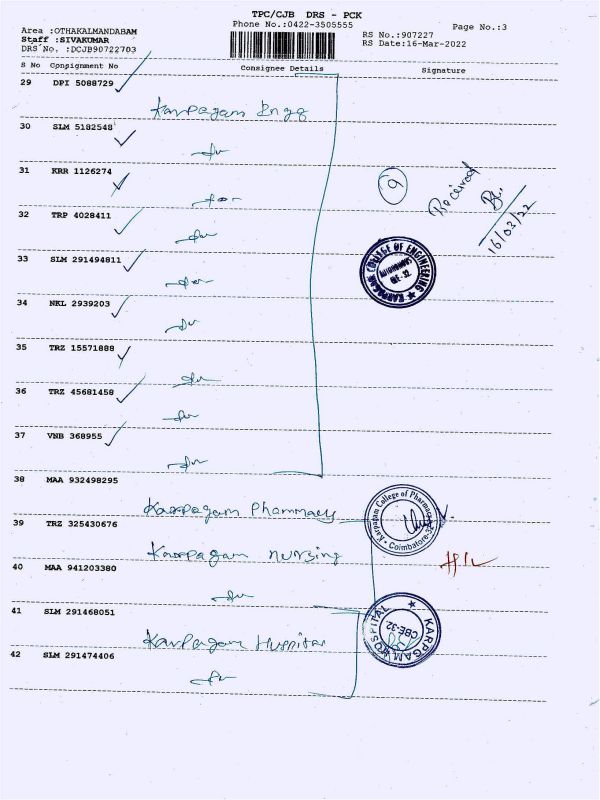 TPC/CJB DRS - PCK
Phone No.:0422-3505555
Page No.:3
Area :OTHAKALMANDABAM
Staff :SIVAKUMAR
DRS No. :DCJB90722703
RS No.:907227
RS Date:16-Mar-2022
S No Consignment No Consignee Details Signature
29 DPI 5088729
Karpagam Engg
30 SLM 5182548
31 KRR 1126274
9
Received
16/03/22
32 TRP 4028411
33 SLM 291494811
KARPAGAM COLLEGE OF ENGINEERING
AUTONOMOUS
CBE-32
34 NKL 2939203
35 TRZ 15571888
36 TRZ 45681458
37 VNB 368955
38 MAA 932498295
Karpagam Pharmacy
Karpagam College of Pharmacy
Coimbatore-32
39 TRZ 325430676
Karpagam nursing
40 MAA 941203380
41 SLM 291468051
Karpagam Hospital
KARPAGAM HOSPITAL
CBE-32
42 SLM 291474406